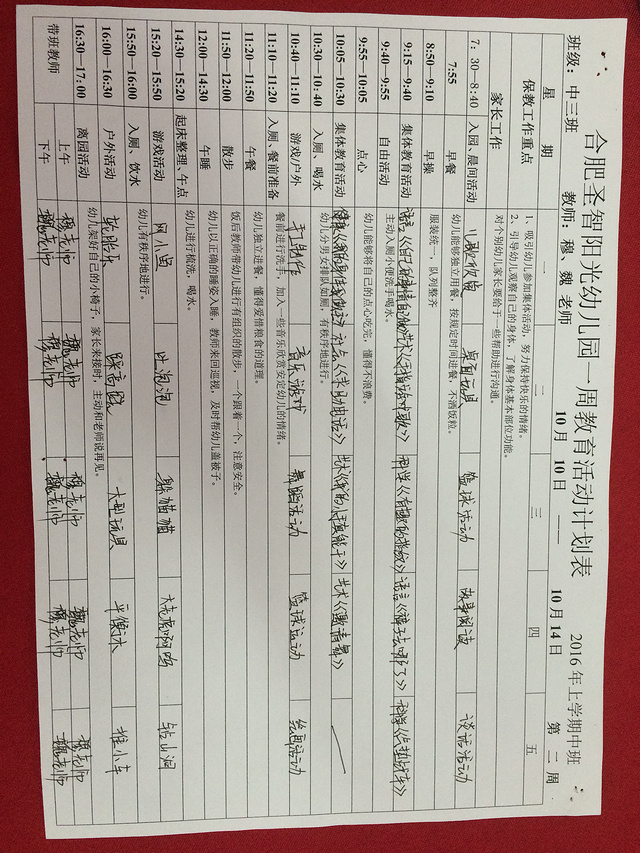 合肥圣智阳光幼儿园一周教育活动计划表
2016年上学期中班
班级：中三班 教师：穆 魏 老师 10月 10日 —— 10月14日 第 二 周
星 期 一 二 三 四 五
保教工作重点
1、吸引幼儿参加集体活动，努力保持快乐的情绪。
2、引导幼儿观察自己的身体，了解身体基本部位功能。
家长工作 对个别幼儿家长要给予一些帮助进行沟通。
7：30—8:40 入园、晨间活动 歌谣 桌面玩具 篮球活动 故事阅读 谈话活动
7:55 早餐 幼儿能够独立用餐，按规定时间进餐，不洒饭粒。
8:50—9:10 早操 服装统一，队列整齐
9:15—9:40 集体教育活动 语言 艺术《手指动动歌》 科学《有趣的指纹》 语言 科学
9:40—9:55 自由活动 主动入厕小便洗手喝水。
9:55—10:05 点心 幼儿能够将自己的点心吃完，懂得不浪费。
10:05—10:30 集体教育活动 社会《求助电话》 艺术 艺术《邀请舞》
10:30—10: 40 入厕、喝水 幼儿分男女排队如厕，有秩序地进行。
10:40—11:10 游戏/户外 手工制作 音乐游戏 舞蹈活动 篮球运动 绘画活动
11:10—11:20 入厕、餐前准备 餐前进行洗手，加入一些音乐欣赏安定幼儿的情绪。
11:20—11:50 午餐 幼儿独立进餐，懂得爱惜粮食的道理。
11:50—12:00 散步 饭后教师带幼儿进行有组织的散步，一个跟着一个，注意安全。
12:00—14:30 午睡 幼儿以正确的睡姿入睡，教师来回巡视，及时帮幼儿盖被子。
14:30—15:20 起床整理、午点 幼儿进行梳洗，喝水。
15:20—15:50 游戏活动 网小鱼 吹泡泡 躲猫猫 大老虎啊呜 钻山洞
15:50—16:00 入厕、饮水 幼儿有秩序地进行。
16:00—16:30 户外活动 轮胎乐 踩高跷 大型玩具 平衡木 推小车
16:30—17:00 离园活动 幼儿架好自己的小椅子，家长来接时，主动和老师说再见。
带班教师 上午 穆老师 穆老师 穆老师 魏老师 穆老师
下午 魏老师 魏老师 魏老师 穆老师 魏老师